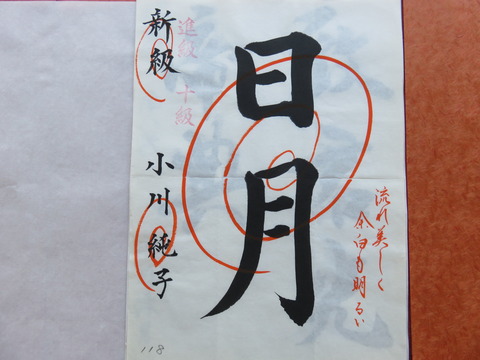 流れ美しく
余白も明るい
日月
進級 十級
新級 小川純子
118